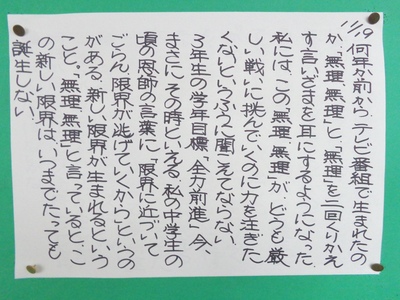 11/19
何年か前から、テレビ番組で生まれたの
か、「無理、無理」と、「無理」を二回くりかえ
す言いざまを耳にするようになった。
私には、この「無理、無理」が、どうも厳
しい戦いに挑んでいくのに力を注ぎた
くないというふうに聞こえてならない。
3年生の学年目標、「全力前進」。今、
まさに、その時といえる。私の中学生の
頃の恩師の言葉に、「限界に近づいて
ごらん。限界が逃げていくから」というの
がある。新しい限界が生まれるという
こと。「無理、無理」と言っていると、こ
の新しい限界は、いつまでたっても
誕生しない。